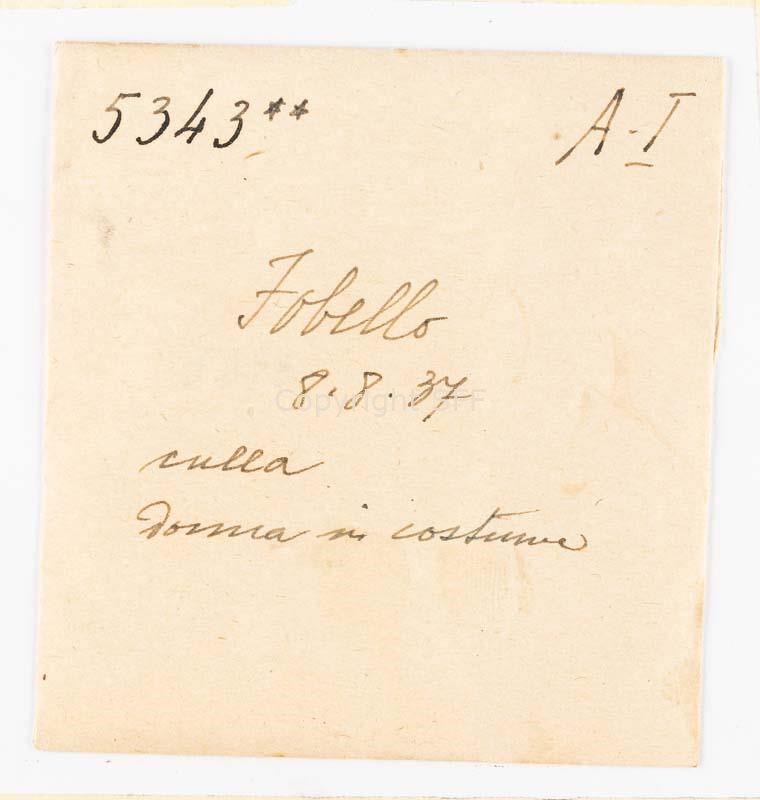 5343** A-I
Fobello
8.8.37
Copyright SFF
culla
Donna in costume